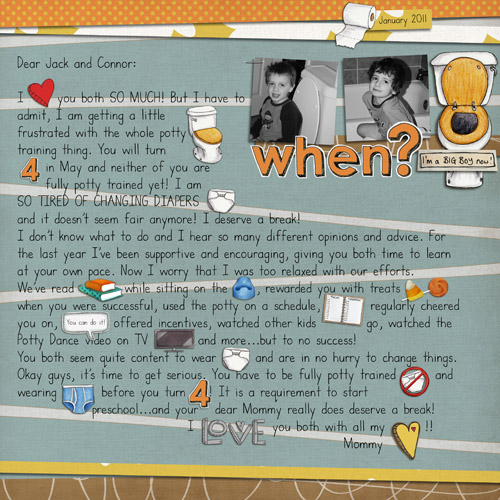 January 2011
Dear Jack and Connor:
I you both SO MUCH! But I have to
admit, I am getting a little
frustrated with the whole potty
training thing. You will turn
4 in May and neither of you are
fully potty trained yet! I am
SO TIRED OF CHANGING DIAPERS
and it doesn't seem fair anymore! I deserve a break!
when?
I'm a BIG BOY now!
I don't know what to do and I hear so many different opinions and advice. For
the last year I've been supportive and encouraging, giving you both time to learn
at your own pace. Now I worry that I was too relaxed with our efforts.
We've read while sitting on the , rewarded you with treats
when you were successful, used the potty on a schedule, regularly cheered
you on, You can do it! offered incentives, watched other kids go, watched the
Potty Dance video on TV and more...but to no success!
You both seem quite content to wear and are in no hurry to change things.
Okay guys, it's time to get serious. You have to be fully potty trained and
wearing before you turn 4! It is a requirement to start
preschool...and your dear Mommy really does deserve a break!
I LOVE you both with all my !!
Mommy